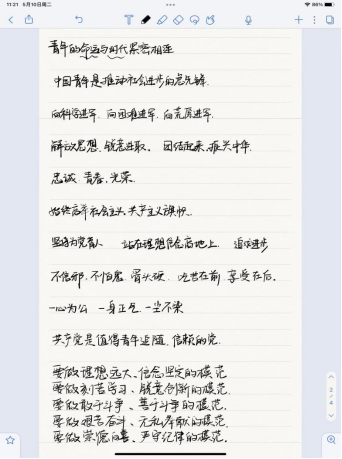 11:21 5月10日周二
86%
青年的命运与时代紧密相连
中国青年是推动社会进步的急先锋
向科学进军、向困难进军、向荒原进军
解放思想、锐意进取。 团结起来、振兴中华
忠诚 青春、光荣
始终高举社会主义、共产主义旗帜。
坚持为党育人 站在理想信念高地上、 追求进步
不信邪、不怕鬼、骨头硬、 吃苦在前 享受在后。
一心为公 一身正气 一尘不染
共产党是值得青年追随、信赖的党
要做理想远大、信念坚定的模范
要做刻苦学习、锐意创新的模范.
要做敢于斗争、善于斗争的模范.
要做艰苦奋斗、无私奉献的模范.
要做崇德向善、严守纪律的模范.
2
4